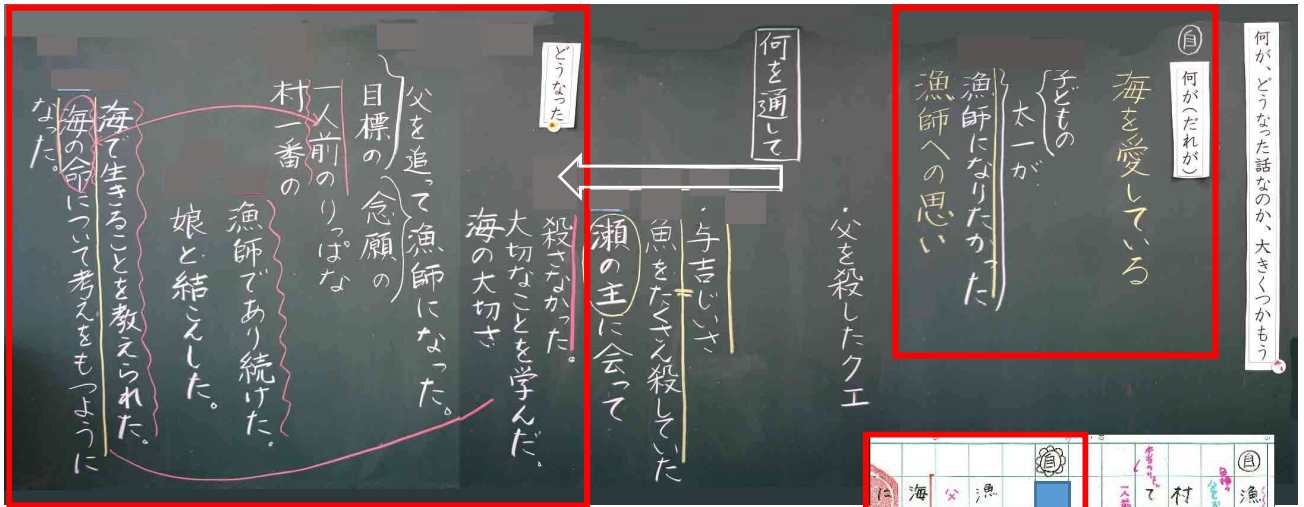 何が、どうなった話なのか、大きくつかもう
自
何が(だれが)
海を愛している
子どもの
太一が
漁師になりたかった
漁師への思い
何を通して
・父を殺したクエ
・与吉じいさ
魚をたくさん殺していた
瀬の主に会って
殺さなかった。
大切なことを学んだ。
海の大切さ
どうなった
父を追って漁師になった。
目標の
念願の
一人前のりっぱな
村一番の
漁師であり続けた。
娘と結こんした。
海で生きることを教えられた。
海の命について考えをもつように
なった。
自
漁
村
て
一人前
自
漁
父
海
に